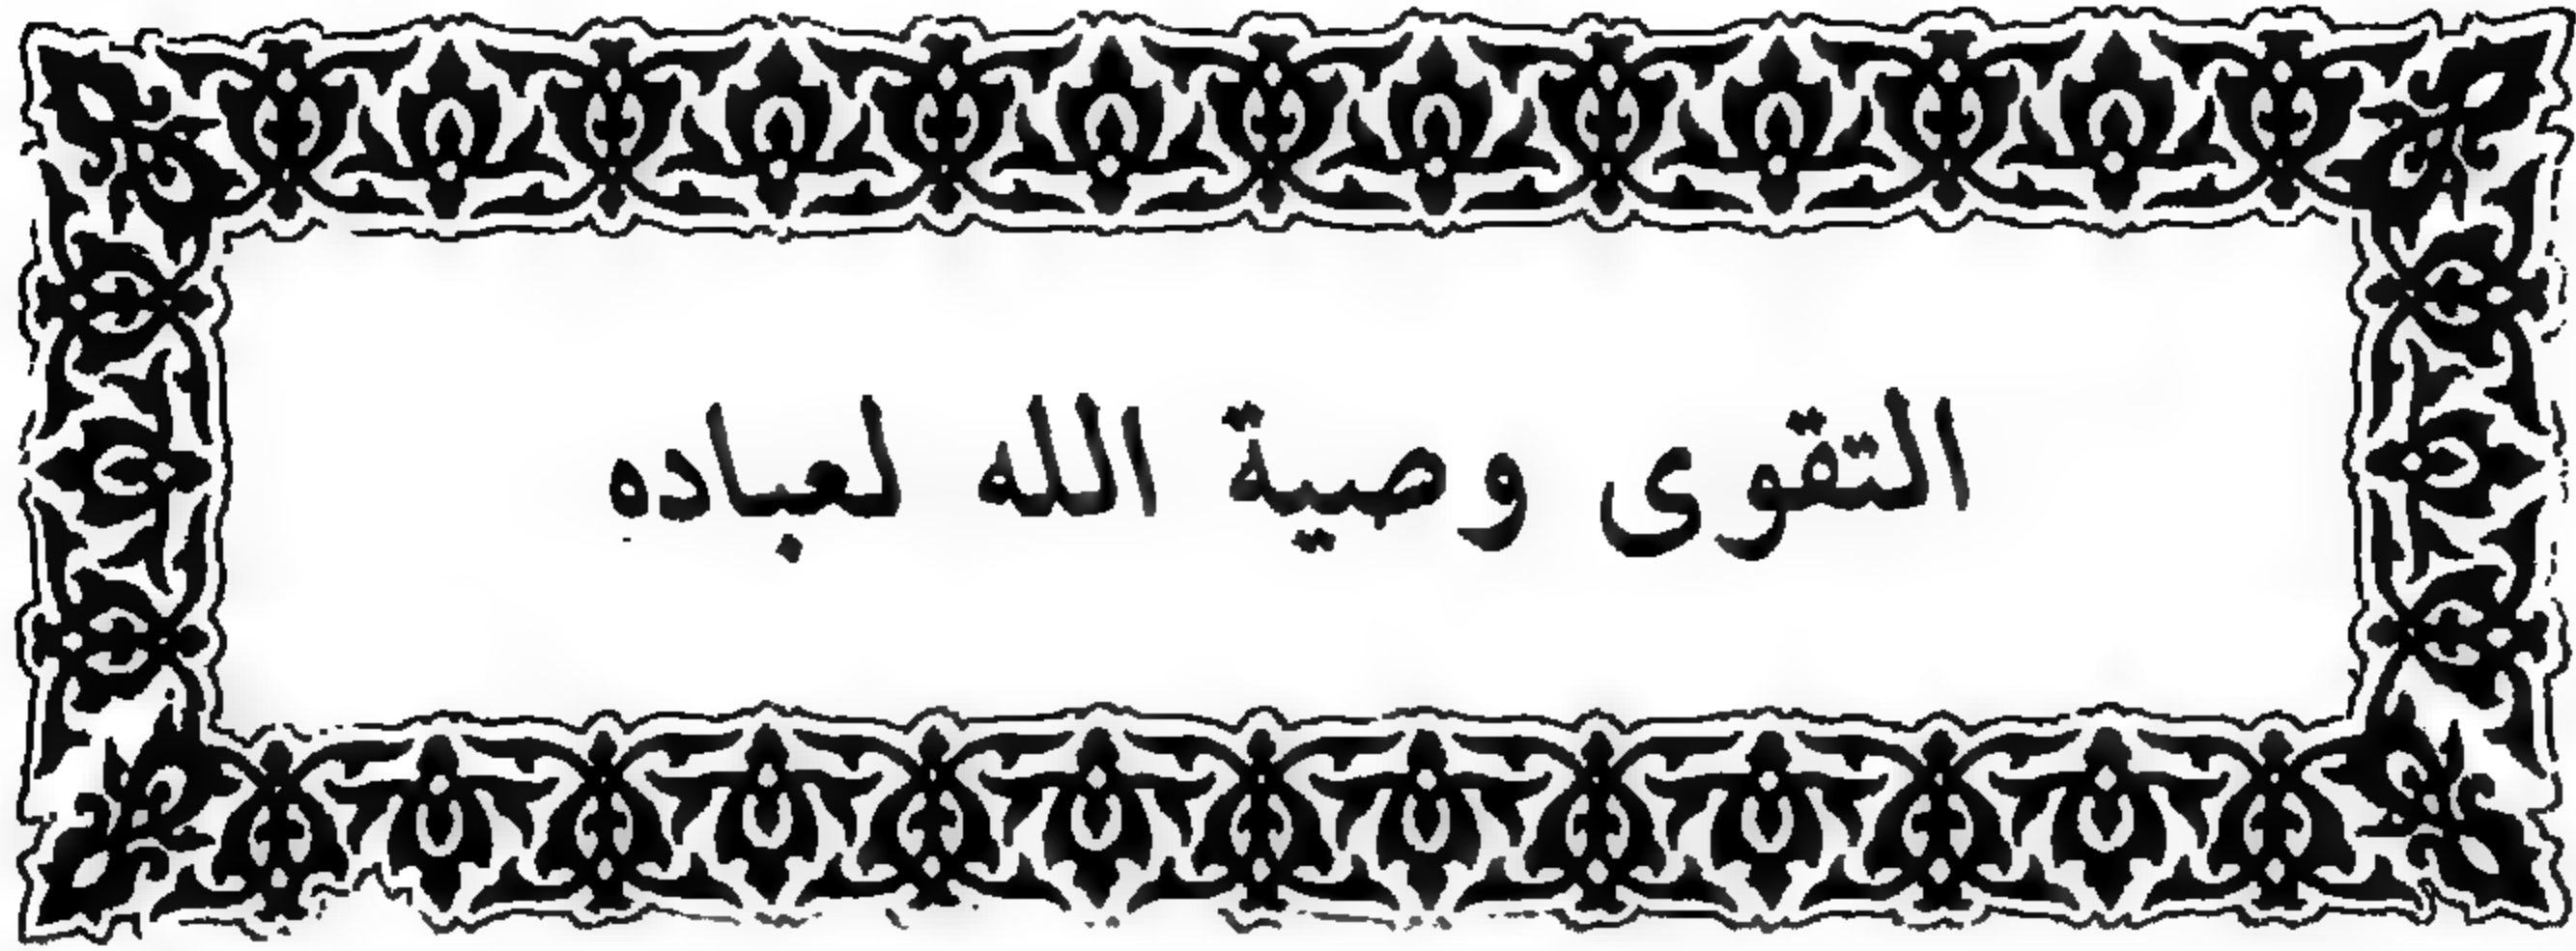 التقوى وصية الله لعباده